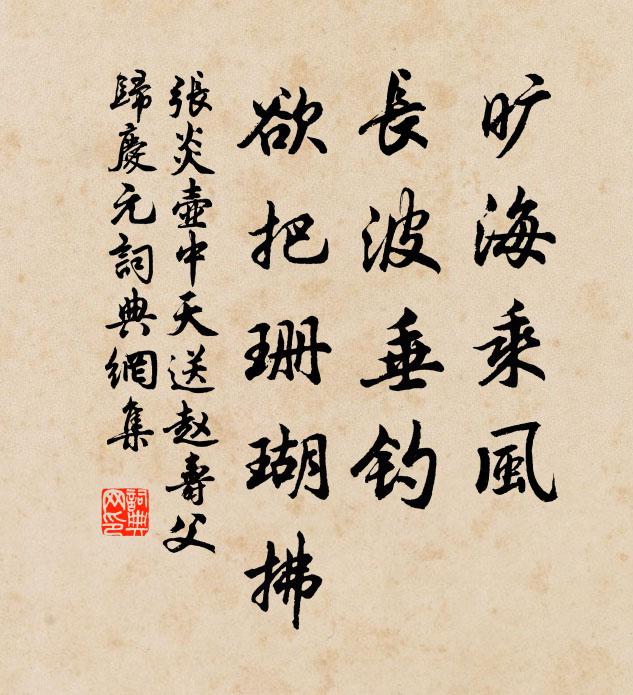 旷海乘風
長波垂钓
欲把珊瑚拂
張炎壺中天送赵壽父
歸慶元詞典網集
詞典
网印